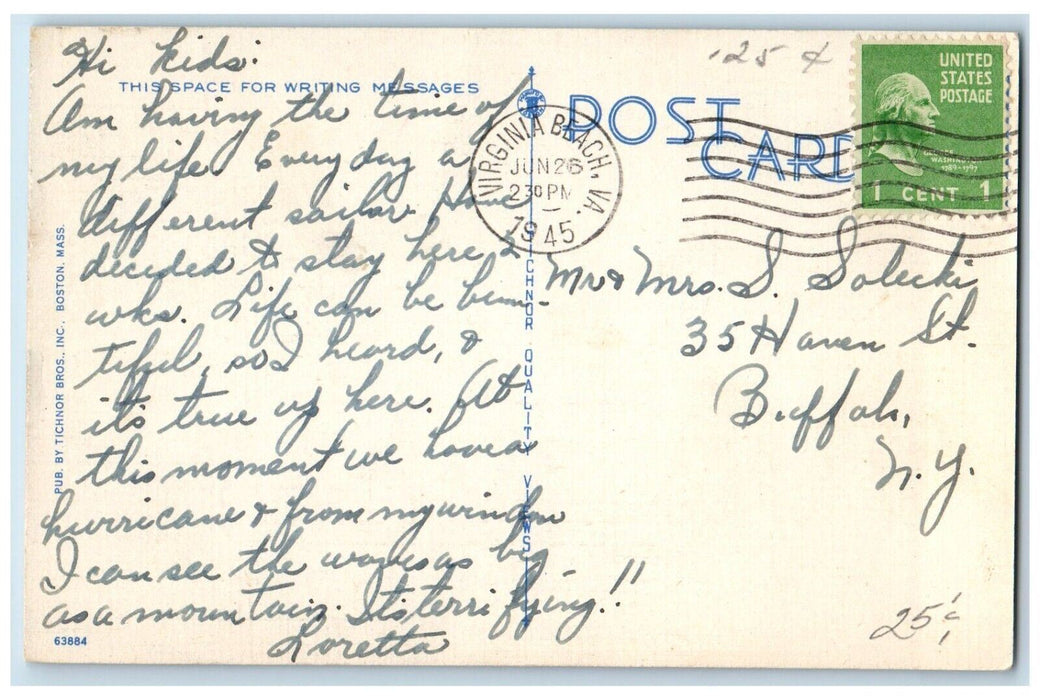 Hi Kids:
THIS SPACE FOR WRITING MESSAGES
Am having the time of
my life. Every day a
different sailor. Have
decided to stay here 2
wks. Life can be beau-
tiful, so I heard, &
it's true up here. At
this moment we have a
hurricane & from my window
I can see the waves as big
as a mountain. It's terrifying!!
Loretta
63884
PUB. BY TICHNOR BROS., INC., BOSTON, MASS.
TICHNOR QUALITY VIEWS
POST
CARD
VIRGINIA BEACH, VA.
JUN 26
2 30 PM
1945
125 ¢
UNITED
STATES
POSTAGE
GEORGE
WASHINGTON
1 CENT 1
Mr & Mrs. S. Solecki
35 Haven St.
Buffalo,
N.Y.
25¢